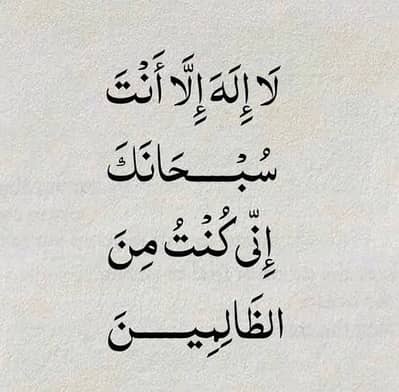 لَا إِلَهَ إِلَّا أَنْتَ
سُبْحَانَكَ
إِنِّي كُنْتُ مِنَ
الظَالِمِينَ